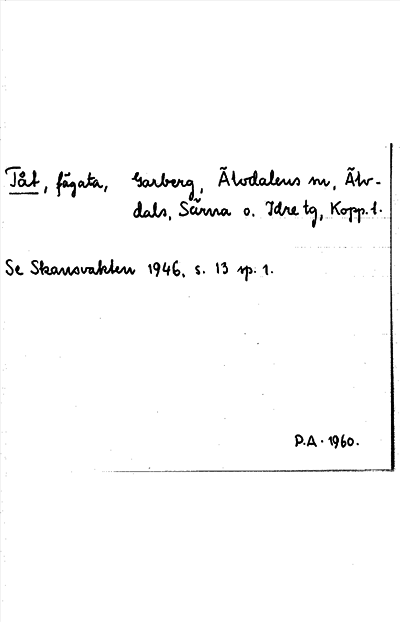 Tåt, fägata, Garberg, Älvdalens sn, Älv-
dals, Särna o. Idre tg, Kopp. l.
Se Skansvakten 1946, s. 13 sp. 1.
P.A. 1960.